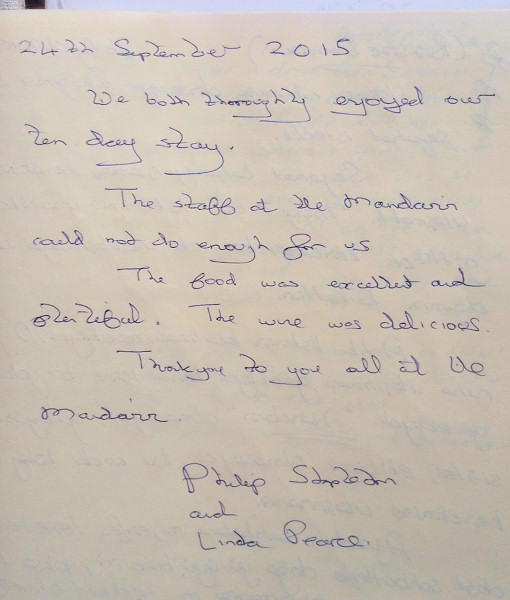 24th September 2015
We both thoroughly enjoyed our
ten day stay.
The staff at the Mandarin
could not do enough for us
The food was excellent and
plentiful. The wine was delicious.
Thankyou to you all at the
Mandarin.
Philip
and
Linda Pearce.